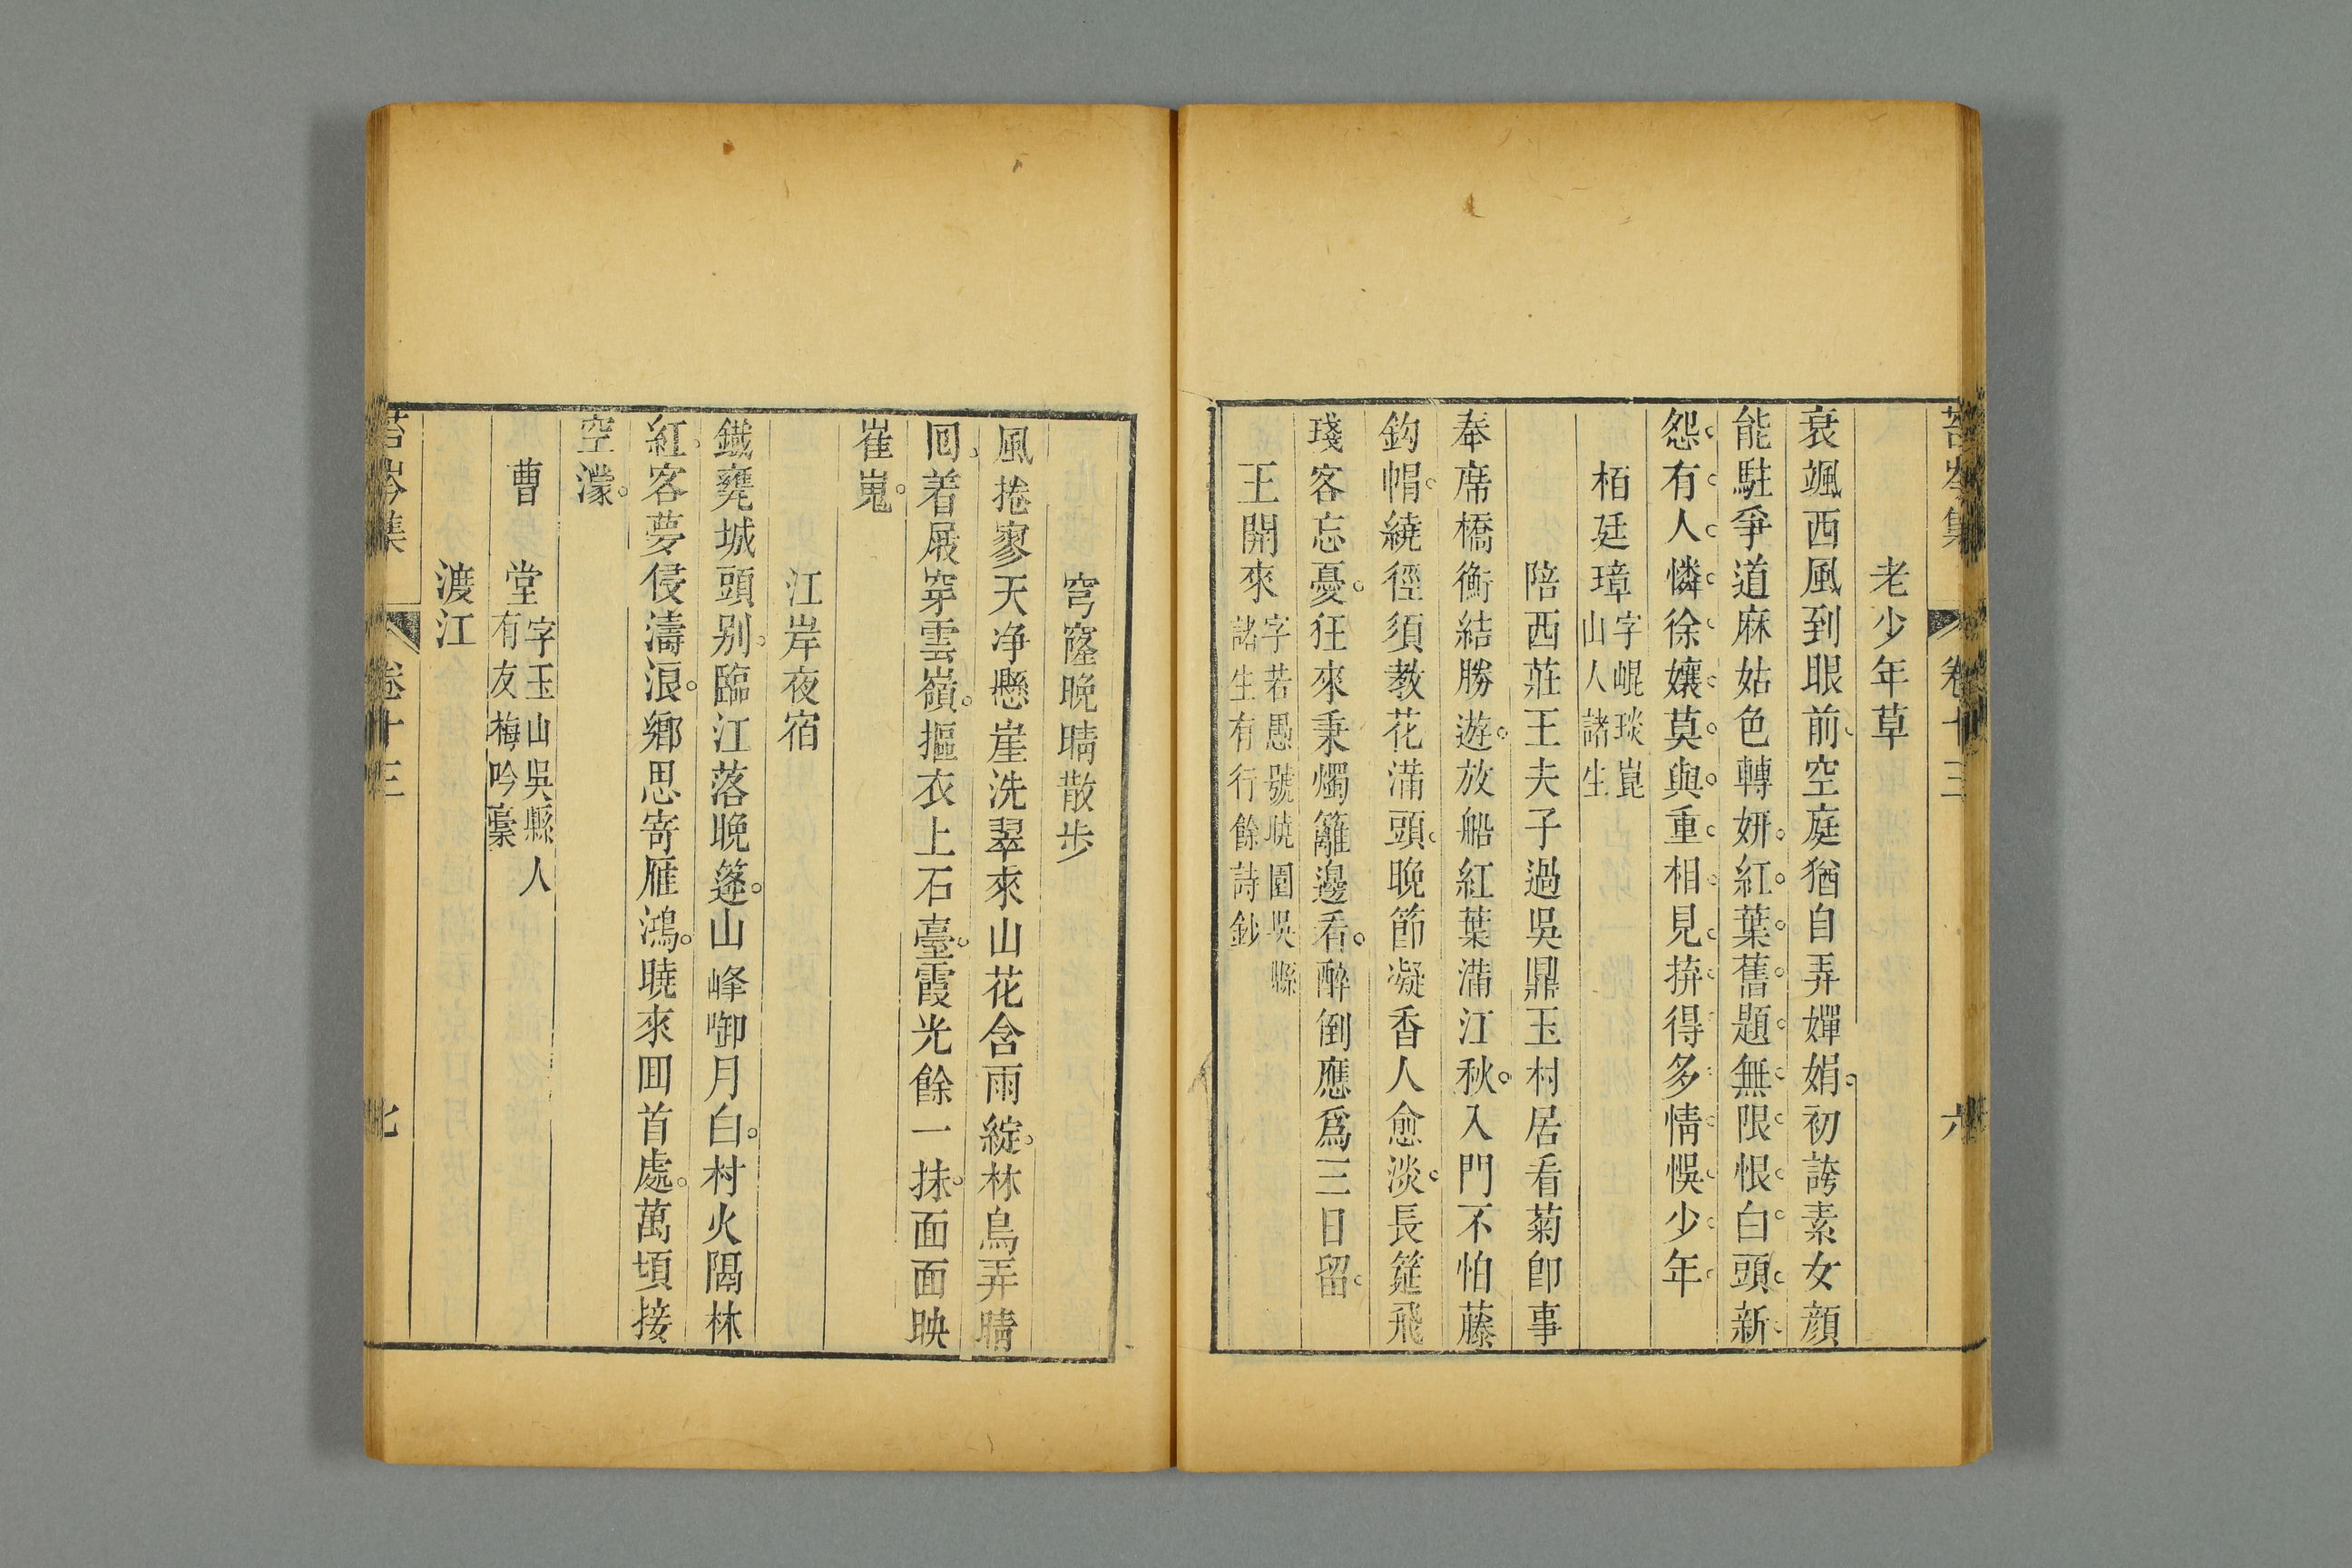 苔岑集 卷十三 六
老少年草
衰颯西風到眼前空庭猶自弄嬋娟初誇素女顔
能駐爭道麻姑色轉妍紅葉舊題無限恨白頭新
怨有人憐徐孃莫與重相見拚得多情悞少年
栢廷璋字崐琰崑山人諸生
陪西莊王夫子過吳鼎玉村居看菊卽事
奉席橋衡結勝遊放船紅葉滿江秋入門不怕藤
鈎帽繞徑須教花滿頭晚節凝香人愈淡長筵飛
琖客忘憂狂來秉燭籬邊看醉倒應爲三日留
王開來字若愚號曉園吳縣諸生有行餘詩鈔
穹窿晚晴散步
風捲寥天净懸崖洗翠來山花含雨綻林鳥弄晴
囘着屐穿雲嶺摳衣上石臺霞光餘一抹面面映
崔嵬
江岸夜宿
鐵甕城頭别臨江落晚篷山峰啣月白村火隔林
紅客夢侵濤浪鄉思寄雁鴻曉來囬首處萬頃接
空濛
曹堂字玉山吳縣人有友梅吟藁
渡江
苔岑集 卷十三 七